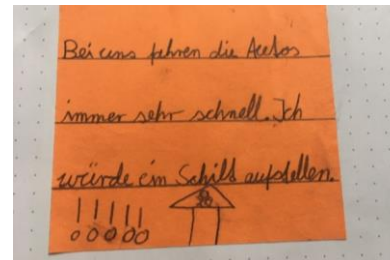 Bei uns fehren die Autos
immer sehr schnell. Ich
würde ein Schild aufstellen.
!!!!!